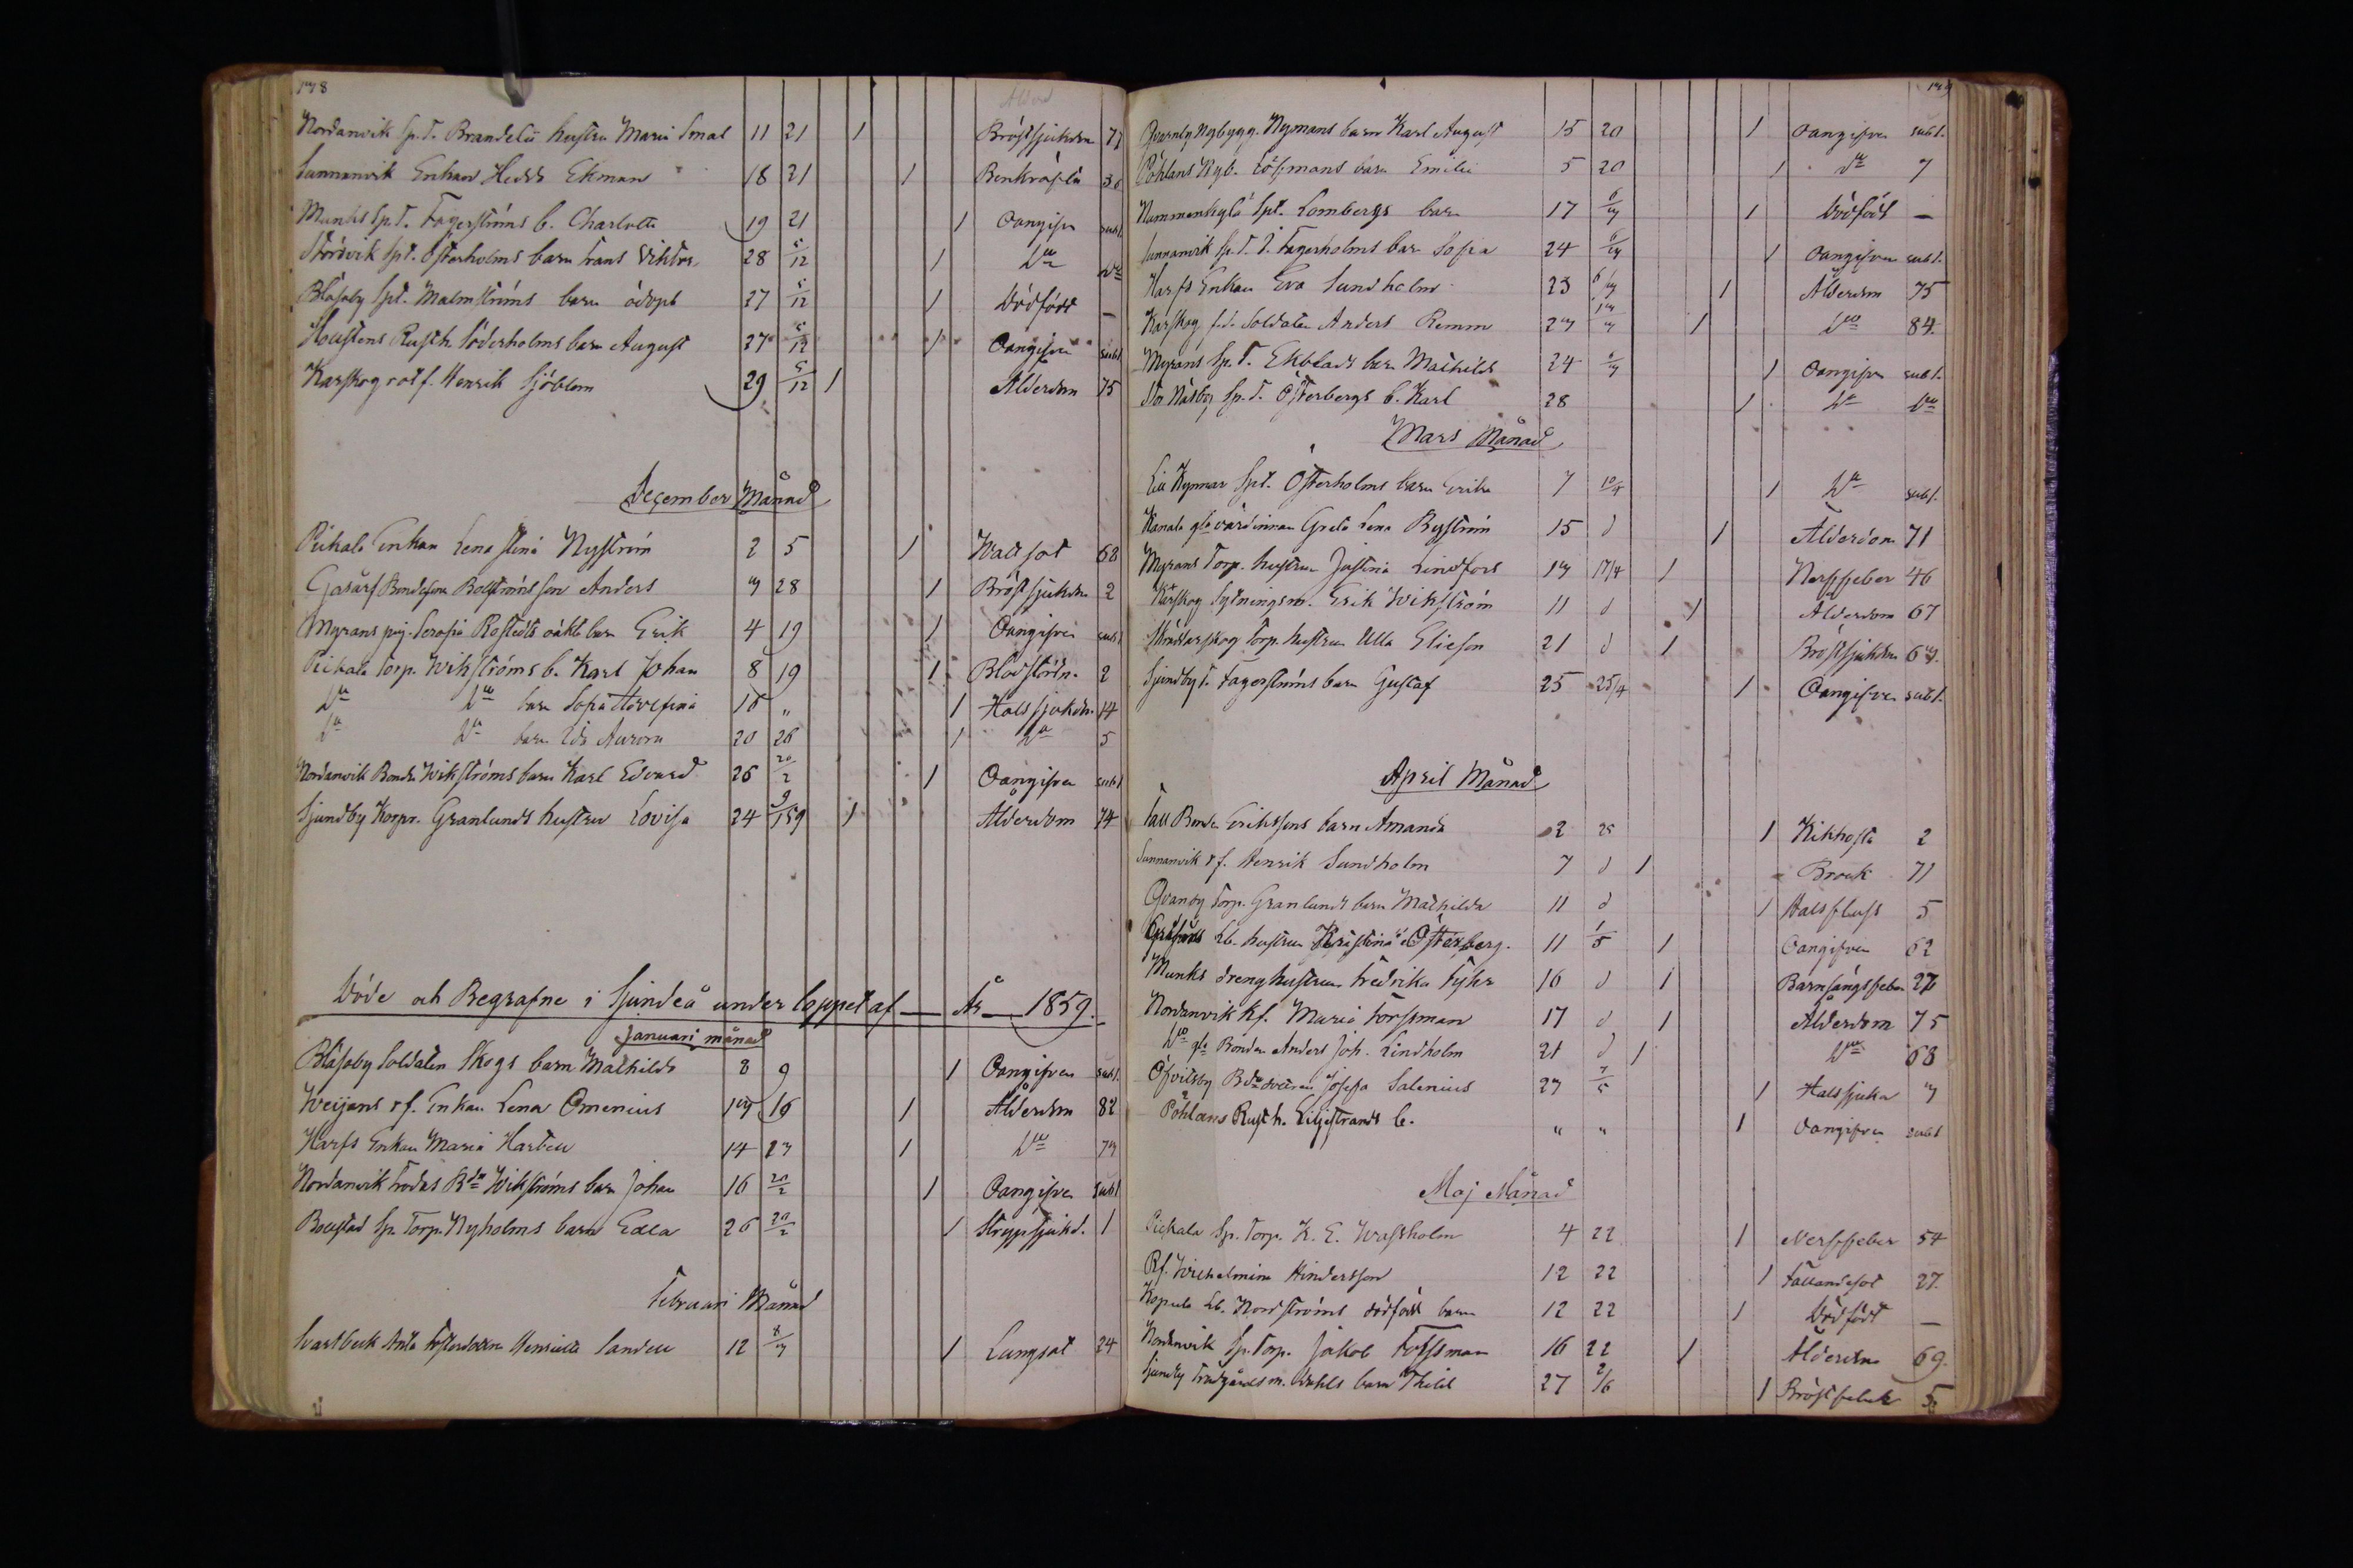 178
Ålderd
Nordanvik Sp.T. Brandelii hustru Maria Smal 11 21 1 Bröstsjukdom
Sunnanvik Enkan Hedda Ekman 18 21 1 Benkräfta 50
Munks Sp.T. Fagerströms b. Charlotta 19 21 1 Oangifven subl.
Störsvik Spt. Österholms barn Frans Viktor 28 5/12 1 D:o D:o
Blåsaby Spt. Malmströms barn ödöpt 27 5/12 1 Dödfödt —
Rusth. Söderholms barn August 27 5/12 1 Oangifven subl.
Karskog rotf. Henrik Sjöblom 29 5/12 1 Ålderdom 75
December Månad
Pickala Enkan Lena Stina Nyström 2 5 1 Wattsot 68
Gårsarf Bondeson Bollströms son Anders 7 28 1 Bröstsjukdom 2
Myrans pig. Serafia Rostedts oäkta barn Erik 4 19 1 Oangifven subl
Pickala Torp. Wikströms b. Karl Johan 8 19 1 Blodstörtn. 2
D:o D:o barn Sofia Josefina 16 " 1 Halssjukdom 14
D:o D:o barn Ida Aurora 20 26 1 D:o 5
Nordanvik Bonde Wikströms barn Karl Edvard 26 20/2 1 Oangifven subl
Sjundby Korpr. Granlunds hustru Lovisa 24 9/1 59 1 Ålderdom 74
Döde och Begrafne i Sjundeå under loppet af — År — 1859.
Januari månad
Blåsaby Soldaten Skogs barn Mathilda 8 9 1 Oangifven subl.
Weijans rf. Enkan Lena Omenius 17 16 1 Ålderdom 82
Harfs Enkan Maria Hartell 14 23 1 D:o 79
Nordanvik Frodas B:de Wikströms barn Johan 16 20/2 1 Oangifven subl
Bollstad Sp. Torp. Nyholms barn Edla 26 20/2 1 Strypsjukd. 1
Februari Månad
Svartbeck Fosterdottren Henrietta Sandell 12 8/7 1 Lungsot 24
179
Qvarnby Nybygg. Nymans barn Karl August 15 20 1 Oangifven subl.
Pöhlans Nyb. Löfmans barn Emilie 5 20 1 D:o 7
Nummenkylä Spt. Lombergs barn 17 6/7 1 Dödfödt —
Sunnanvik Sp.T. J. Fagerholms barn Sofia 24 6/7 1 Oangifven subl.
Harfs Enkan Eva Sundholm 23 6/7 1 Ålderdom 75
Karskog f.d. Soldaten Anders Remm 27 1 D:o 84.
Myrans Sp.T. Ekblads barn Mathilda 24 6/7 1 Oangifven subl.
Stor Näsby Sp.T. Österbergs b. Karl 28 1 D:o D:o
Mars Månad
Lill Kynnar Spt. Österholms barn Erika 7 10/4 1 D:o subl.
Kanala gla värdinnan Greta Lena Byström 15 d 1 Ålderdom 71
Myrans Torp. hustrun Justina Lindfors 17 17/4 1 Nerffeber 46
Karskog Sytningsm. Erik Wikström 11 d 1 Ålderdom 67
Skräddarskog Torp. hustrun Ulla Elieson 21 d 1 Bröstsjukdom 67.
Sjundby T. Fagerströms barn Gustaf 25 25/4 1 Oangifven subl.
April Månad
Fall Bonden Erikssons barn Amanda 2 25 1 Kikhosta 2
Sunnanvik rf. Henrik Sundholm 7 d 1 Brock 71
Qvarnby Torp. Granlunds barn Mathilda 11 d 1 Halsfluss 5
Lb. hustrun Kristina Österberg. 11 1/5 1 Oangifven 62
Munks dreng hustrun Fredrika Fyhr 16 d 1 Barnsängsfeber 27
Nordanvik Rf. Maria Forssman 17 d 1 Ålderdom 75
D:o gla Bonden Anders Joh. Lindholm 21 d 1 D:o 68
Öfvitsby B:de dottren Josefa Salenius 27 7/5 1 Halssjuka 7
Pöhlans Rusth. Liljestrands b. " " 1 Oangifven subl
Maj Månad
Pickala Sp. Torp. K. E. Wassholm 4 22 1 Nerffeber 54
Rf. Wilhelmina Hindersson 12 22 1 Fallandesot 27.
Kopula Lb. Nordströms dödfödt barn 12 22 1 Dödfödt —
Nordanvik Sp. Torp. Jakob Forssman 16 22 1 Ålderdom 69.
Sjundby Trädgårdsm. Dahls barn Thild 27 2/6 1 Bröstfeber 5